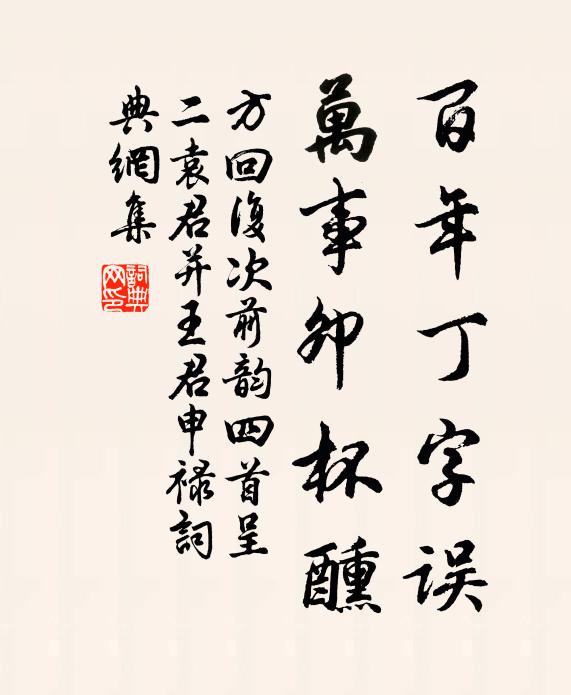 百年丁字误
萬事卯杯醺
方回復次前韵四首呈
二袁君并王君申禄詞
典網集
詞典网印